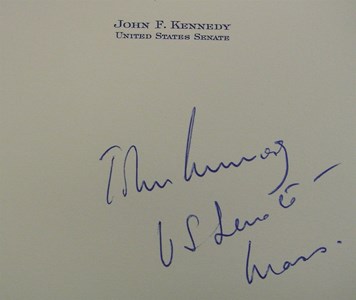 John F. Kennedy
United States Senate
John Kennedy
US Senate –
Mass.